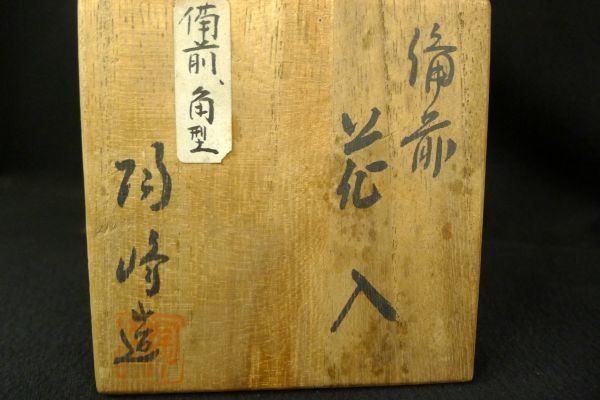 備前
花入
備前、角型
陶峰造